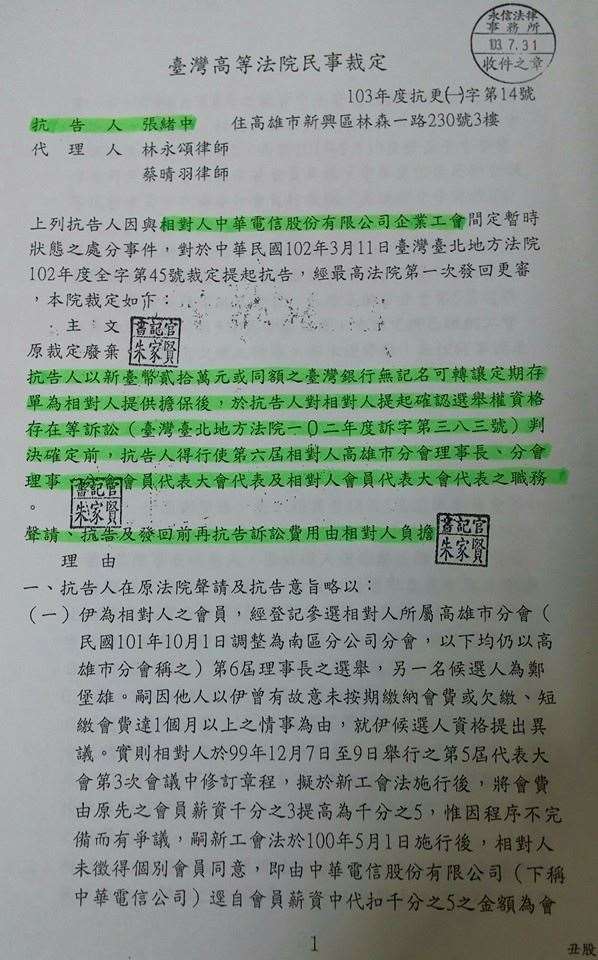 永信法律
事務所
103.7.31
收件之章
臺灣高等法院民事裁定
103年度抗更㈠字第14號
抗告人 張緒中 住高雄市新興區林森一路230號3樓
代理人 林永頌律師
蔡晴羽律師
上列抗告人因與相對人中華電信股份有限公司企業工會間定暫時
狀態之處分事件，對於中華民國102年3月11日臺灣臺北地方法院
102年度全字第45號裁定提起抗告，經最高法院第一次發回更審
，本院裁定如下：
主文
原裁定廢棄
書記官
朱家賢
抗告人以新臺幣貳拾萬元或同額之臺灣銀行無記名可轉讓定期存
單為相對人提供擔保後，於抗告人對相對人提起確認選舉權資格
存在等訴訟（臺灣臺北地方法院一０二年度訴字第三八三號）判
決確定前，抗告人得行使第六屆相對人高雄市分會理事長、分會
理事、分會會員代表大會代表及相對人會員代表大會代表之職務
。
書記官
朱家賢
聲請、抗告及發回前再抗告訴訟費用由相對人負擔
書記官
朱家賢
理由
一、抗告人在原法院聲請及抗告意旨略以：
（一）伊為相對人之會員，經登記參選相對人所屬高雄市分會（
民國101年10月1日調整為南區分公司分會，以下均仍以高
雄市分會稱之）第6屆理事長之選舉，另一名候選人為鄭
堡雄。嗣因他人以伊曾有故意未按期繳納會費或欠繳、短
繳會費達1個月以上之情事為由，就伊候選人資格提出異
議。實則相對人於99年12月7日至9日舉行之第5屆代表大
會第3次會議中修訂章程，擬於新工會法施行後，將會費
由原先之會員薪資千分之3提高為千分之5，惟因程序不完
備而有爭議，嗣新工會法於100年5月1日施行後，相對人
未徵得個別會員同意，即由中華電信股份有限公司（下稱
中華電信公司）逕自會員薪資中代扣千分之5之金額為會
1
丑股